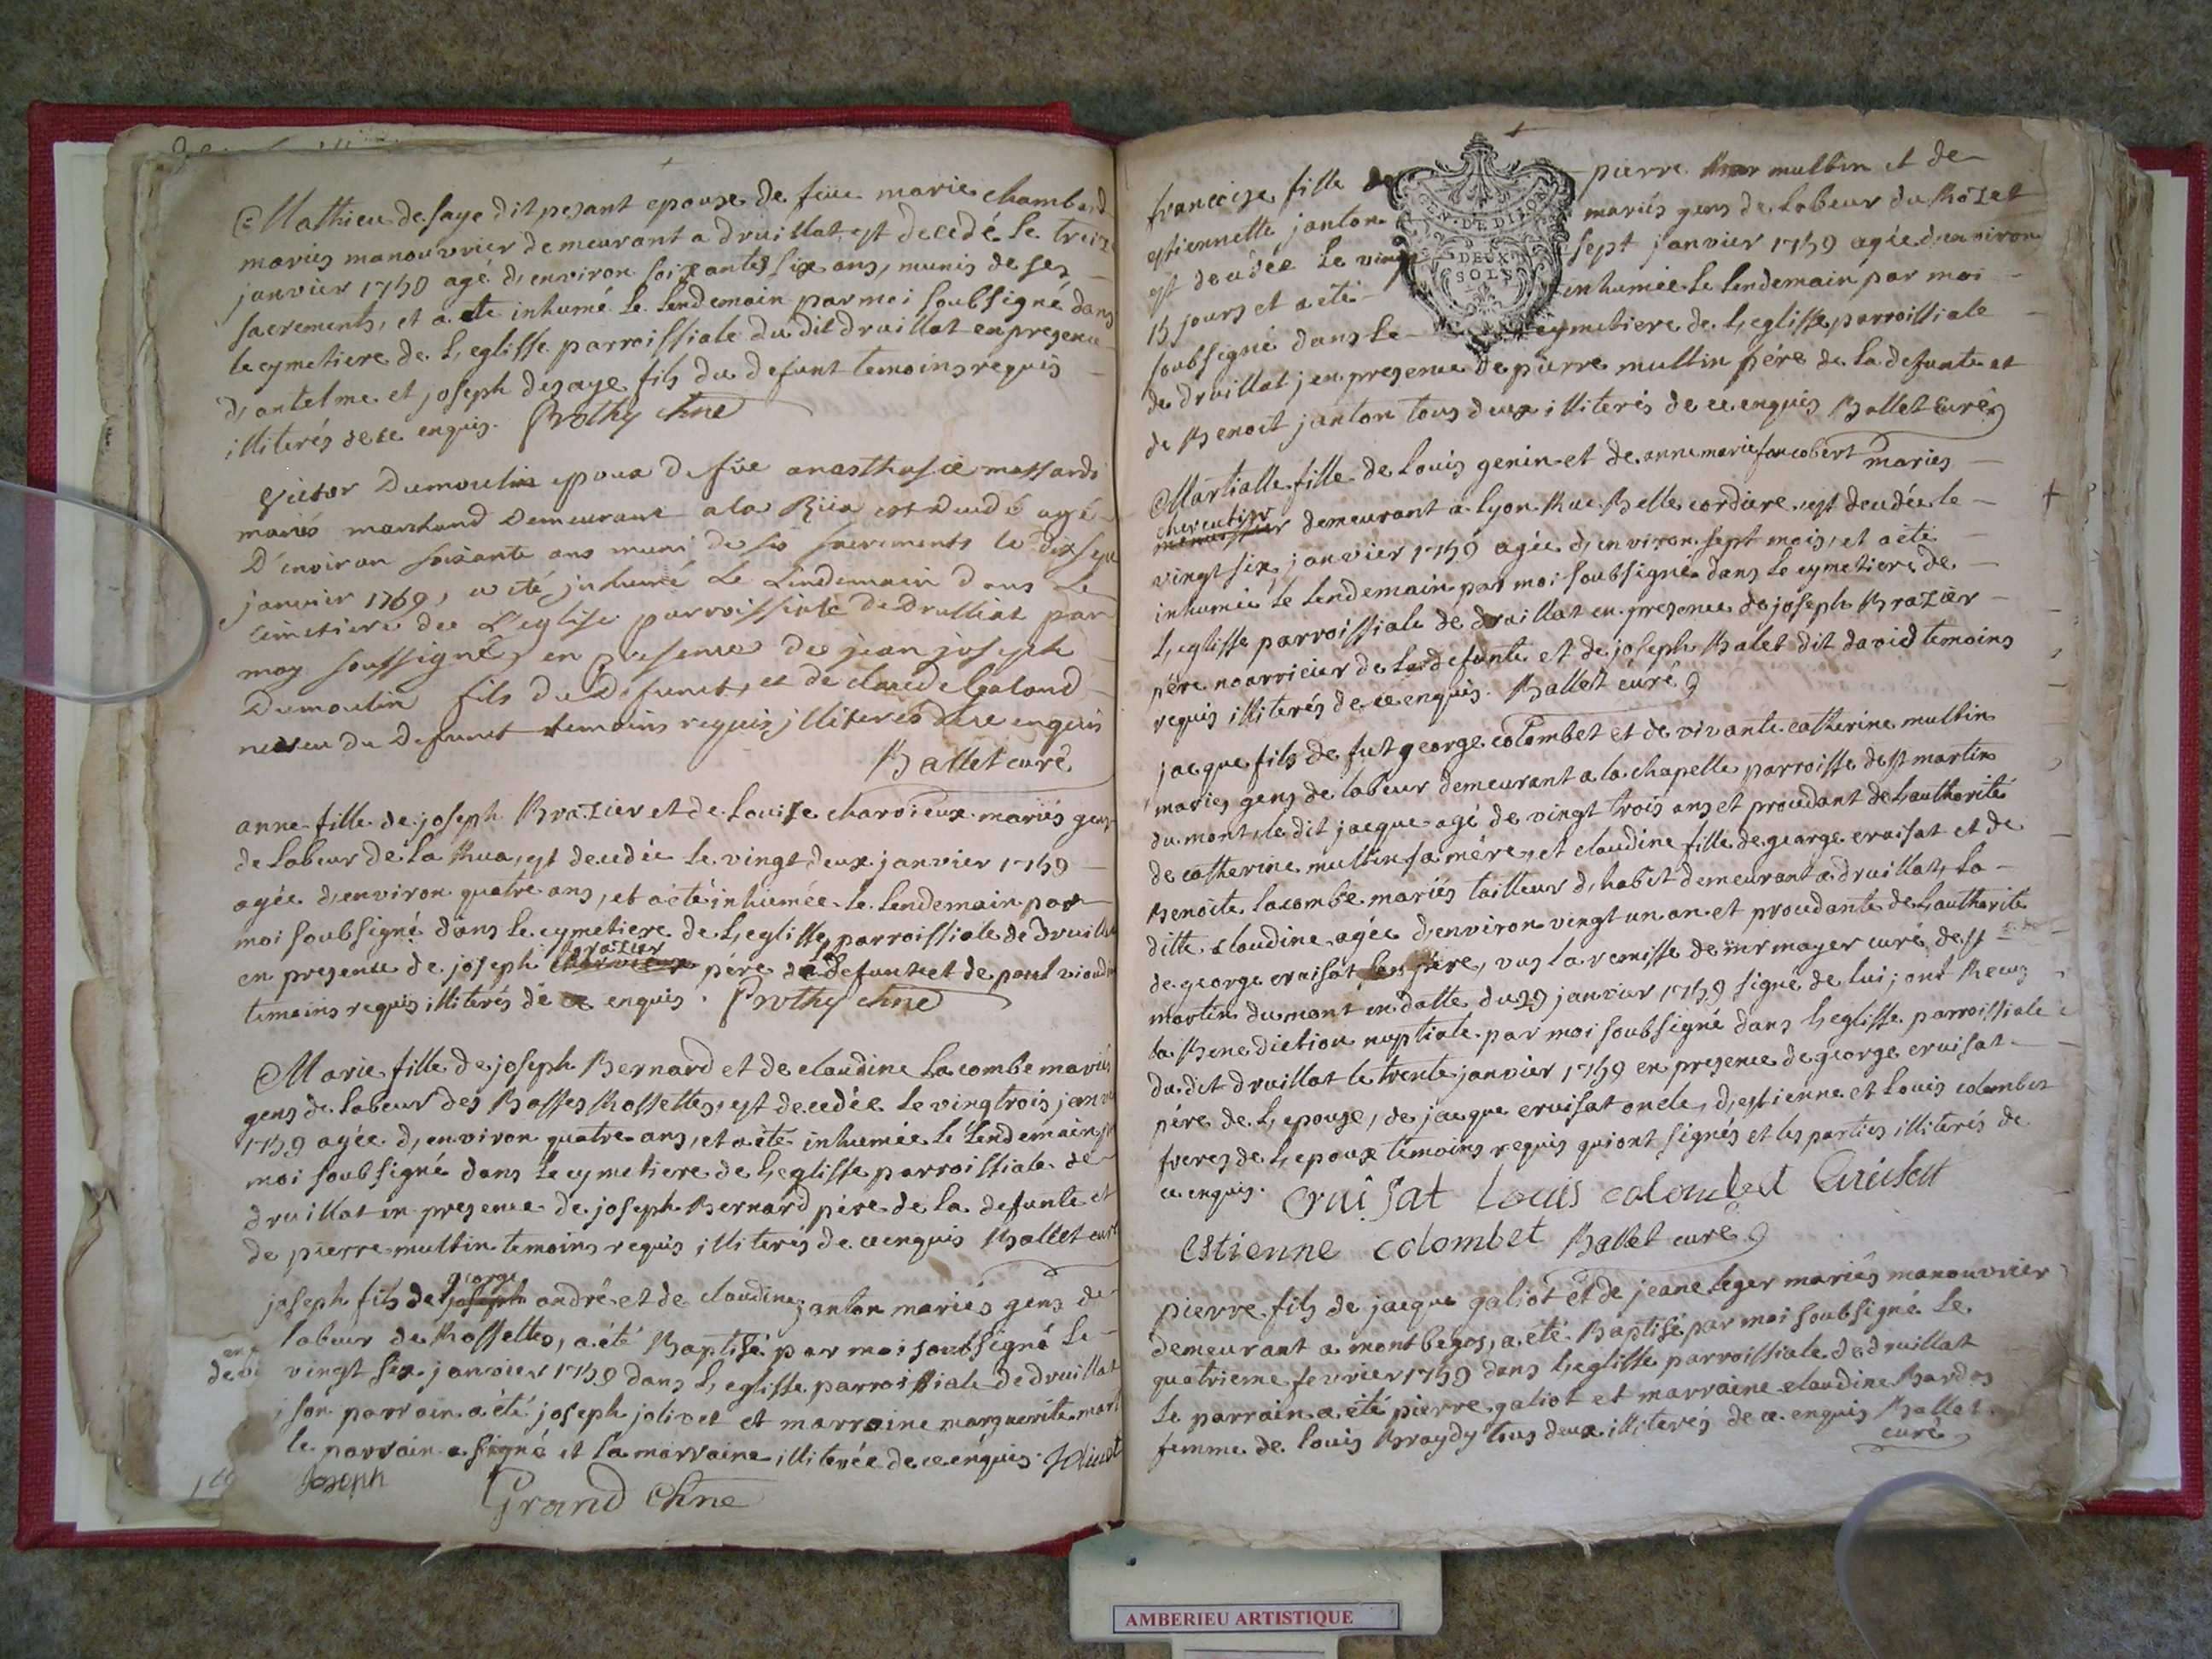 Mathieu desaye dit pesant epoux de feüe marie chambard
mariés manouvrier demeurant a druillat, est decedé le treize
janvier 1759 agé d,environ soixante, six ans, munis de ses
sacrements, et a eté inhumé le lendemain par moi soubsigné dans
le cymetiere de L,eglisse parroissiale du dit druillat en presence
d,antelme et joseph desaye fils du defunt temoins requis
illiterés de ce enquis. Prothy chne
Victor Dumoulin epoux de füe anasthasie massard
mariés marchand Demeurant a la Rüa est Decedé agé
D'environ soixante ans muni de ses sacrements le dix sept
janvier 1769, a eté jnhumé Le Lendemain dans Le
cimetiere de L'eglise parroissiale De Drulliat par
moy soussigné, en presence de jean joseph
Dumoulin fils du Defunct, et de claude Galand
neveu du Defunct temoins requis jlliteres De ce enquis
Ballet curé
anne fille de joseph Brazier et de Louise charvieux mariés gens
de Labeur de La Rua, est decedée le vingt deux janvier 1759
agée d,environ quatre ans, et a eté inhumée le lendemain par
moi soubsigné dans le cymetiere de L,eglisse parroissiale de druillat
brazier
en presence de joseph charvieux père de la defunte et de paul vioud
temoins requis illiterés de ce enquis. Prothy chne
Marie fille de joseph Bernard et de claudine Lacombe mariés
gens de Labeur des Basses Rossettes, est decedée le vingtrois janv
1759 agée d,environ quatre ans, et a eté inhumée le lendemain p
moi soubsigné dans le cymetiere de L,eglisse parroissiale de
druillat en presence de joseph Bernard pére de la defunte et
de pierre multin temoins requis illiterés de ce enquis Ballet curé
george
joseph fils de joseph andré et de claudine janton mariés gens de
labeur de Rossettes, a été Baptisé par moi soubsigné le
vingt six janvier 1759 dans L,eglisse parroissiale de druillat
son parrain a été joseph jolivet et marraine marguerite mart
le parrain a signé et la marraine illiterée de ce enquis. Jolivet
Joseph Grand chne
francoise fille de pierre multin et de
estiennette janton mariés gens de labeur du Rozet
est decedée le vingt sept janvier 1759 agée d,environ
15 jours et a eté inhumée le lendemain par moi
soubsigné dans le cymetiere de L,eglisse parroissiale
de druillat, en presence de pierre multin pére de la defunte et
de Benoit janton tous deux illiterés de ce enquis Ballet curé
GEN. DE DIJON
DEUX
SOLS
Martialle fille de Louis genin et de anne marie foucobert mariés
chercutier
menuissier demeurant a Lyon Rue Belle cordiere est decedée le
vingt six janvier 1759 agée d,environ sept mois, et a eté
inhumée le lendemain par moi soubsigné dans le cymetiere de
L,eglisse parroissiale de druillat en presence de joseph Brazier
pére nourricier de la defunte et de joseph Balet dit david temoins
requis illiterés de ce enquis. Ballet curé
jacque fils de fut george colombet et de vivante catherine multin
mariés gens de labeur demeurant a la chapelle parroisse de st martin
du mont, le dit jacque agé de vingt trois ans et procedant de L,authorité
de catherine multin sa mére, et claudine fille de george cruisat et de
Benoite lacombe mariés tailleur d,habit demeurant a druillat, la
ditte claudine agée d,environ vingt un an et procedante de L,authorité
de george cruisat son pére, vus la remisse de mr mayer curé de st
martin du mont en datte du 29 janvier 1759 signé de lui; ont Recus
la Benediction nuptiale par moi soubsigné dans L,eglisse parroissiale
du dit druillat le trente janvier 1759 en presence de george cruisat
pére de L,epouse, de jacque cruisat oncle, d,estienne et Louis colombet
freres de L,epoux temoins requis qui ont signés et les parties illiterés de
ce enquis. Cruisat Louis colombet Cruisat
estienne colombet Ballet curé
pierre fils de jacque galiot et de jeane leger mariés manouvrier
demeurant a mont begos, a été Baptisé par moi soubsigné le
quatrieme fevrier 1759 dans L,eglisse parroissiale de druillat
le parrain a eté pierre galiot et marraine claudine Bardos
femme de louis Braydy tous deux illiterés de ce enquis Ballet
curé
AMBERIEU ARTISTIQUE